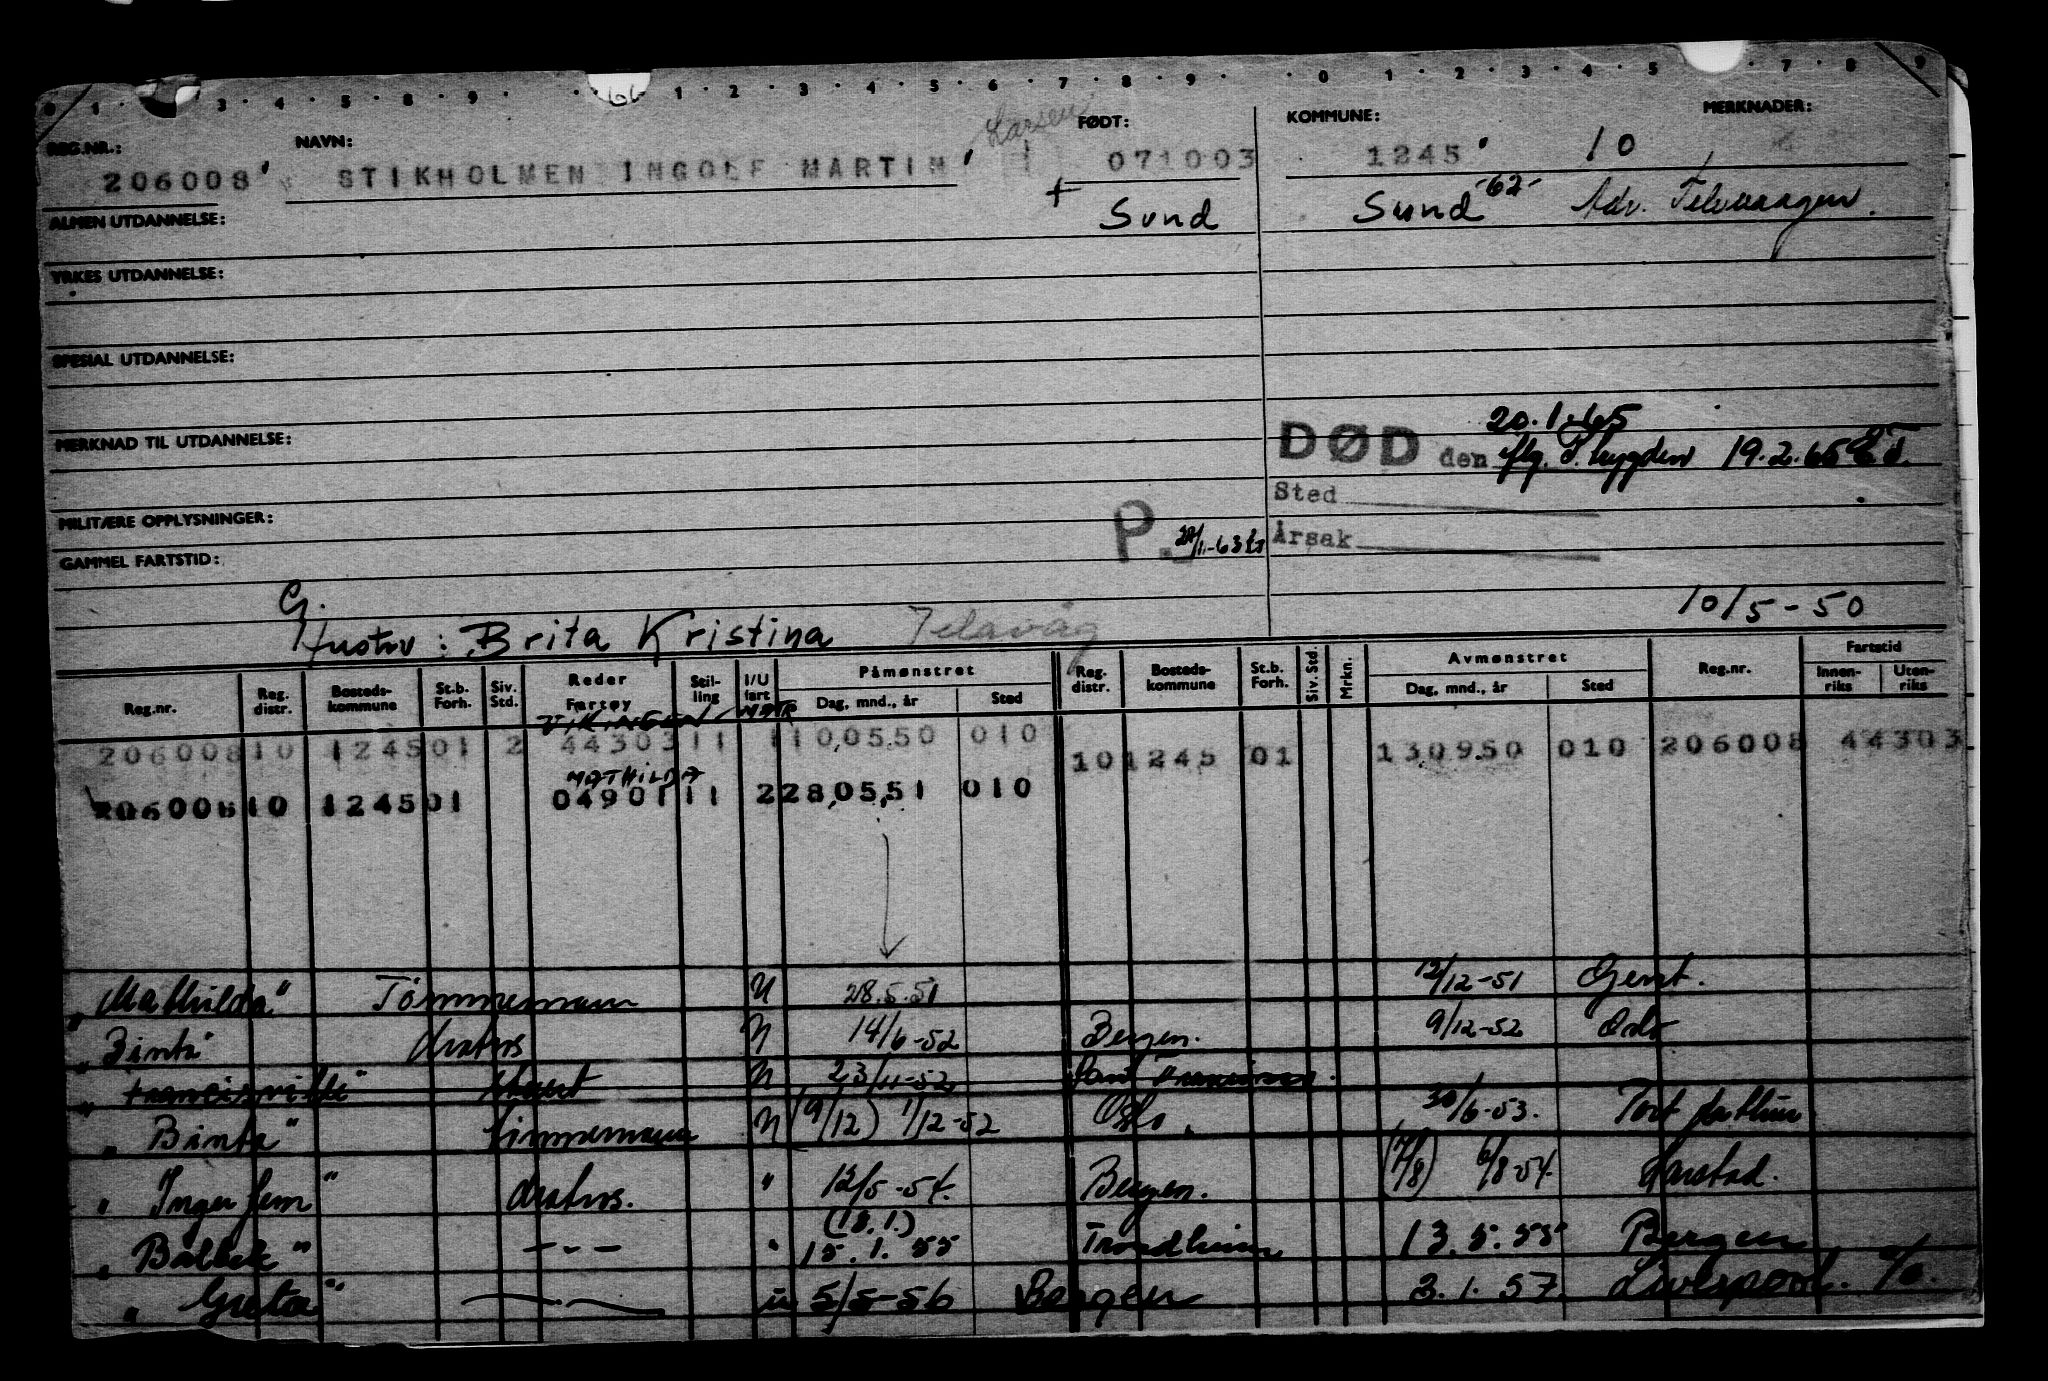 0 1 3 4 5 8 9 1 2 3 4 5 6 7 8 9 0 1 2 3 4 5 7 8 9
REG.NR.: NAVN: Larsen FØDT: KOMMUNE: MERKNADER:
206008 STIKHOLMEN INGOLF MARTIN 071003 1245 10
+ Sund Sund -62- Adr. Telavaagen.
ALMEN UTDANNELSE:
YRKES UTDANNELSE:
SPESIAL UTDANNELSE:
20.1.65
MERKNAD TIL UTDANNELSE: DØD den flg. P. trygden 19.2.65
Sted
MILITÆRE OPPLYSNINGER:
P. -63 Årsak
GAMMEL FARTSTID:
G. 10/5-50
Hustru: Brita Kristina Telavåg
Reg.nr. Reg. distr. Bosteds-kommune St.b. Forh. Siv. Std. Reder Fartøy Stil-ling I/U fart Påmønstret Dag, mnd., år Sted Reg. distr. Bosteds-kommune St.b. Forh. Siv. Std. Mrkn. Avmønstret Dag, mnd., år Sted Reg.nr. Fartstid Innen-riks Uten-riks
VIKINGEN
206008 10 1245 01 2 44303 11 1 10,05.50 010 10 1245 01 130950 010 206008 44303
MATHILDA
206008 10 1245 01 04901 11 2 28,05,51 010
"Mathilda" Tømmermann U 28.5.51 12/12-51 Gent.
"Binta" Matros U 14/6-52 Bergen. 9/12-52 Oslo
U 23/11-52
"Binta" Timmermann U (9/12) 1/12-52 Oslo. 30/6-53. Port
"Inger Jem" Matros. " 12/5-54. Bergen. (7/8) 6/8-54. Harstad.
"Balbek" -"- " (18.1.) 15.1.55 Trondheim 13.5.55 Bergen
"Greta" -"- u 5/5-56 Bergen 3.1.57 Liverpool. %.